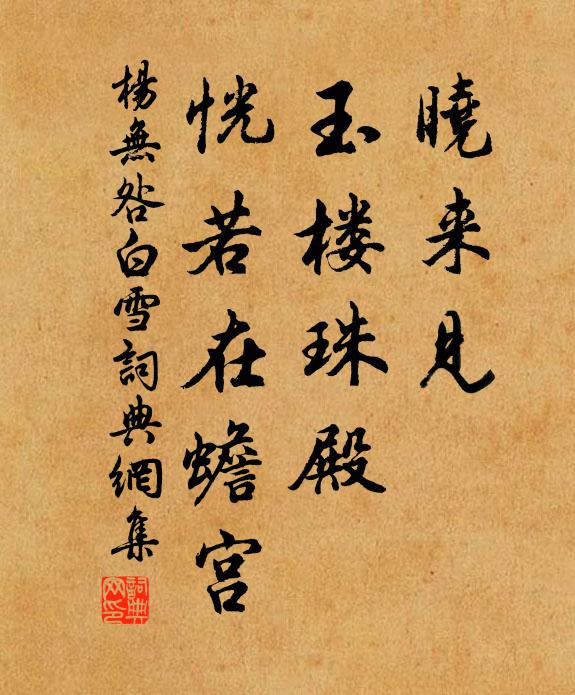 曉来見
玉楼珠殿
恍若在蟾宫
楊無咎白雪詞典網集
詞典网印